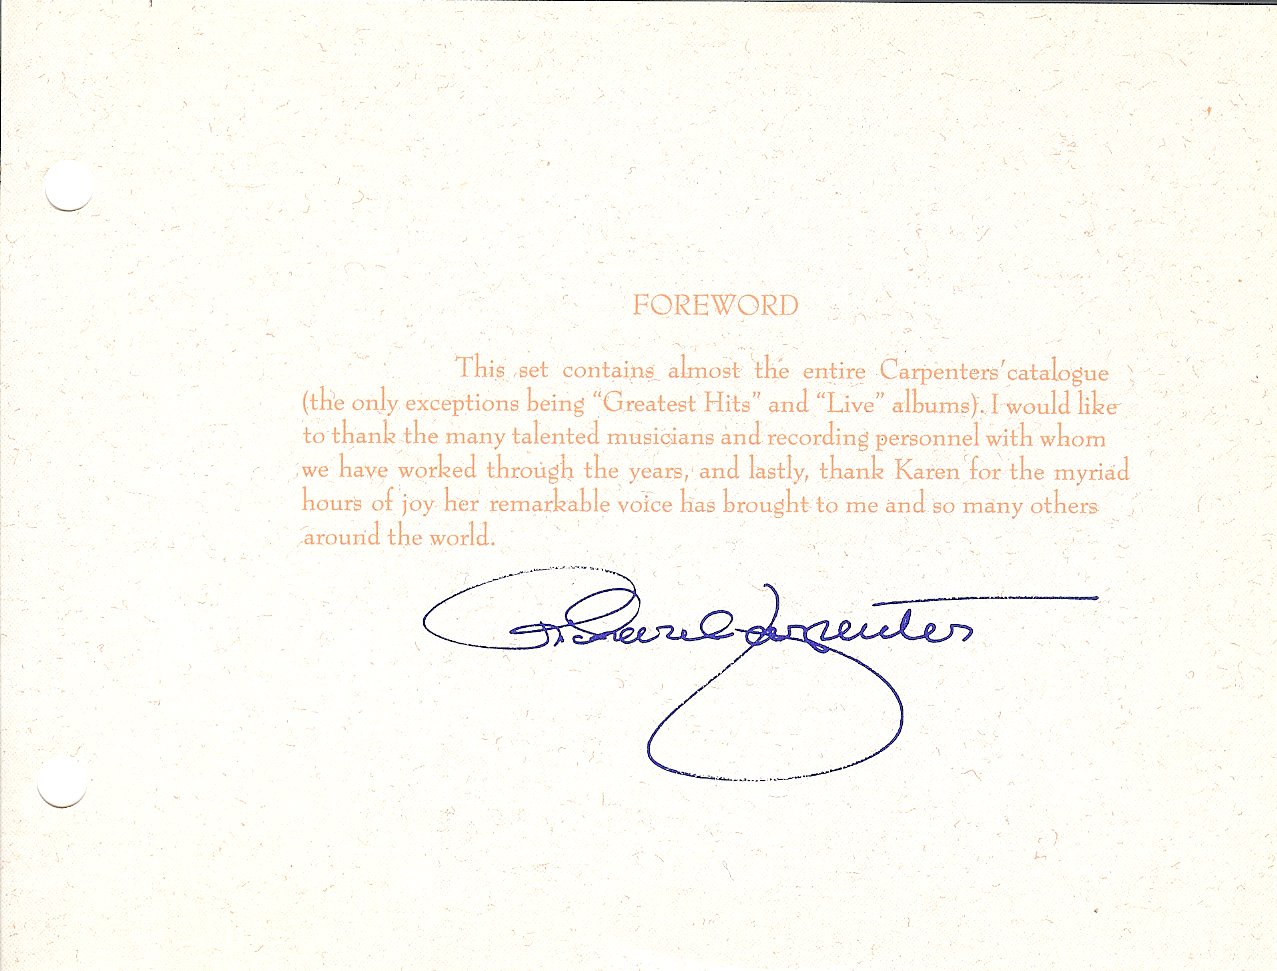 FOREWORD
This set contains almost the entire Carpenters' catalogue
(the only exceptions being “Greatest Hits” and “Live” albums). I would like
to thank the many talented musicians and recording personnel with whom
we have worked through the years, and lastly, thank Karen for the myriad
hours of joy her remarkable voice has brought to me and so many others
around the world.
Richard Carpenter